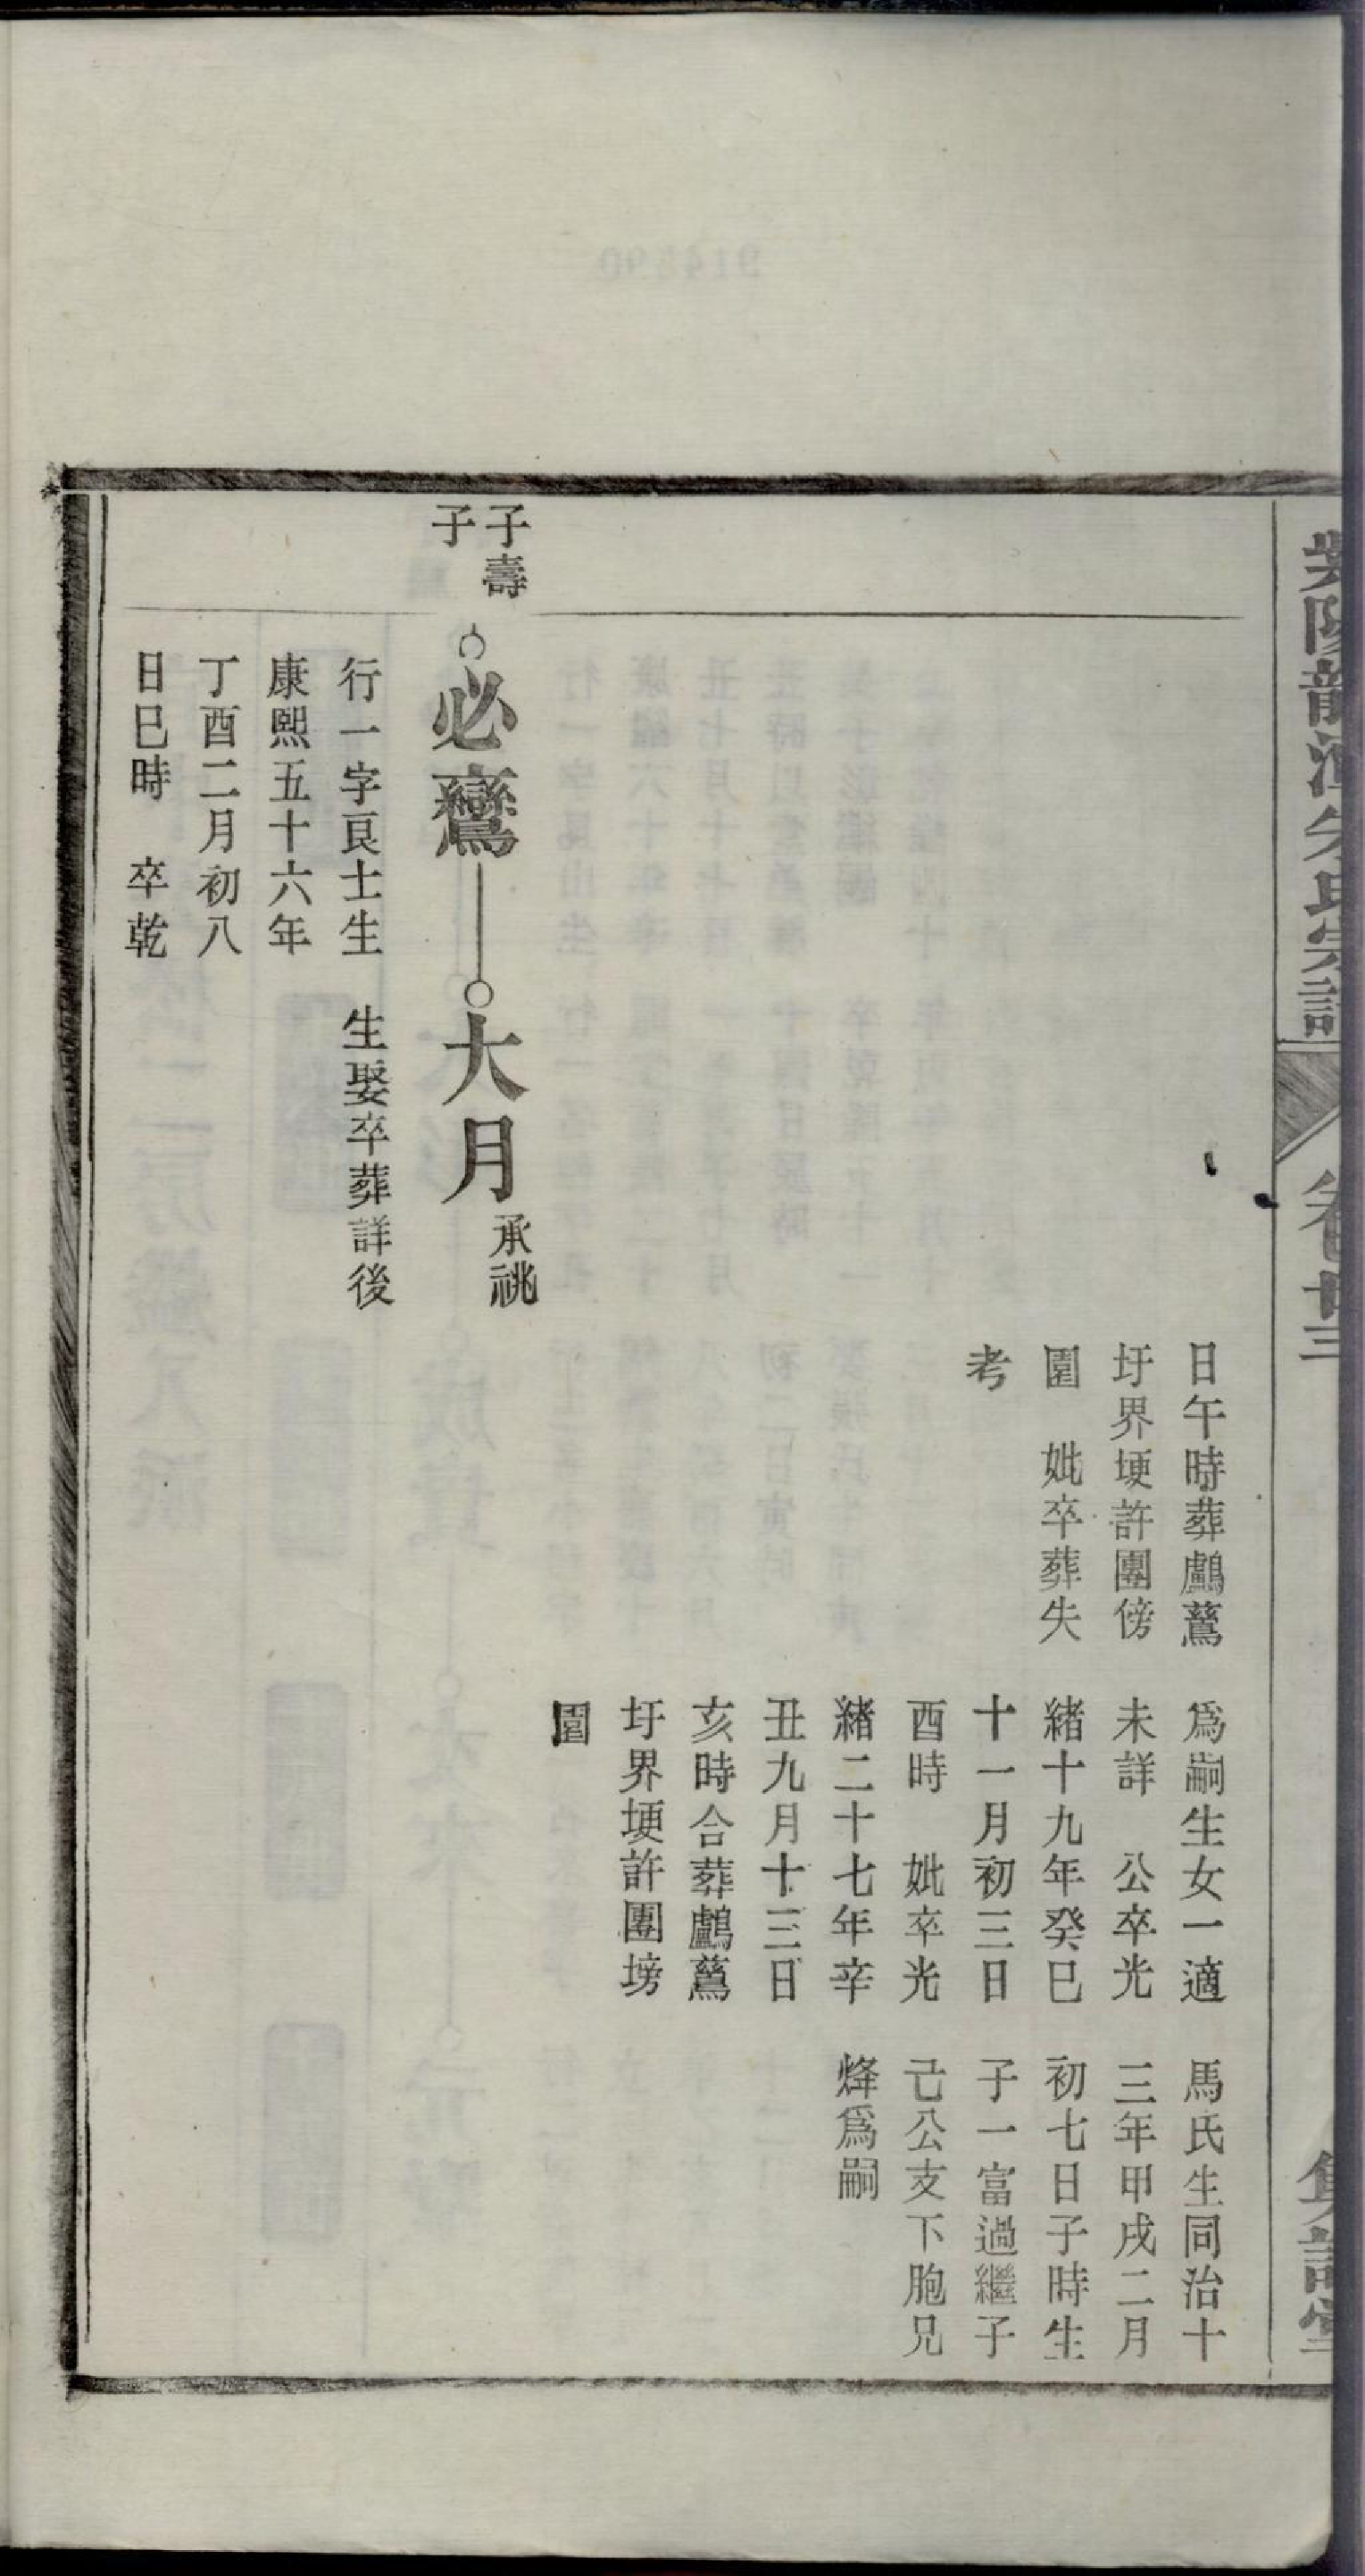 日午時葬鸕鶿
圩界埂許團傍
園　妣卒葬失
考
為嗣生女一適
未詳　公卒光
緒十九年癸巳
十一月初三日
酉時　妣卒光
緒二十七年辛
丑九月十三日
亥時合葬鸕鶿
圩界埂許團塝
園
馬氏生同治十
三年甲戌二月
初七日子時生
子一富過繼子
己公支下胞兄
烽為嗣
子壽
子
必鸞
大月
承祧
行一字良士生
康熙五十六年
丁酉二月初八
日巳時　卒乾
生娶卒葬詳後
卷廿三